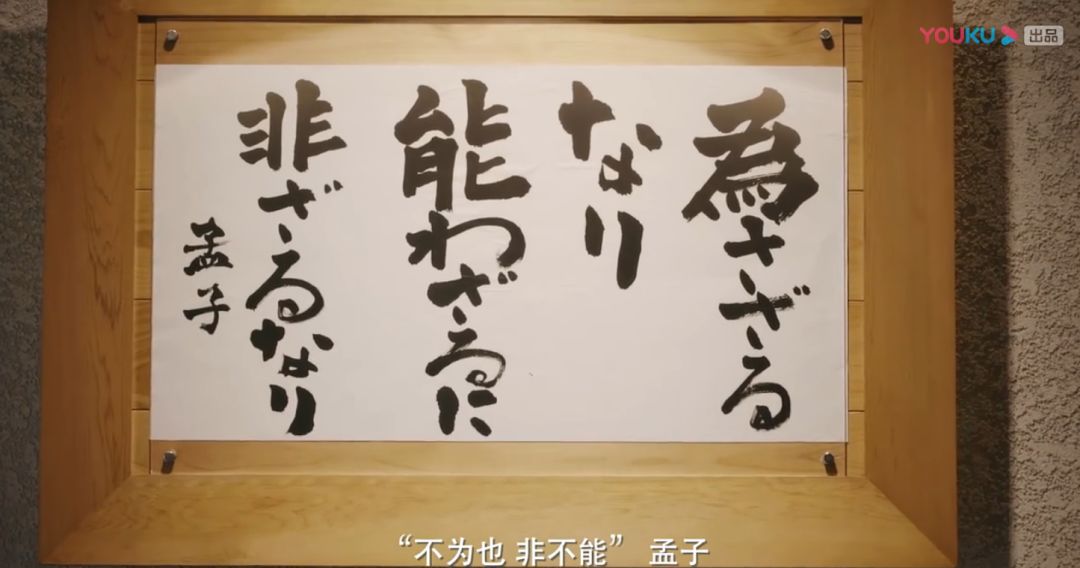 YOUKU 出品
為さざる
なり
能わざるに
非ざるなり
孟子
“不为也 非不能” 孟子